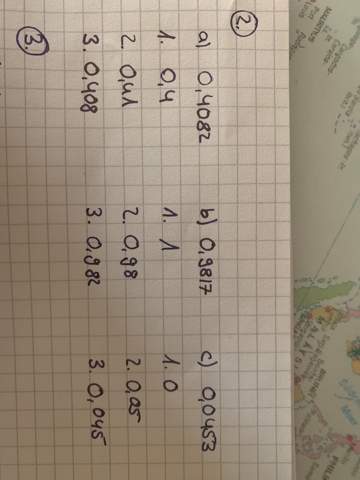 2.
a) 0,4082 b) 0,9817 c) 0,0453
1. 0,4 1. 1 1. 0
2. 0,41 2. 0,98 2. 0,05
3. 0,408 3. 0,982 3. 0,045
3.